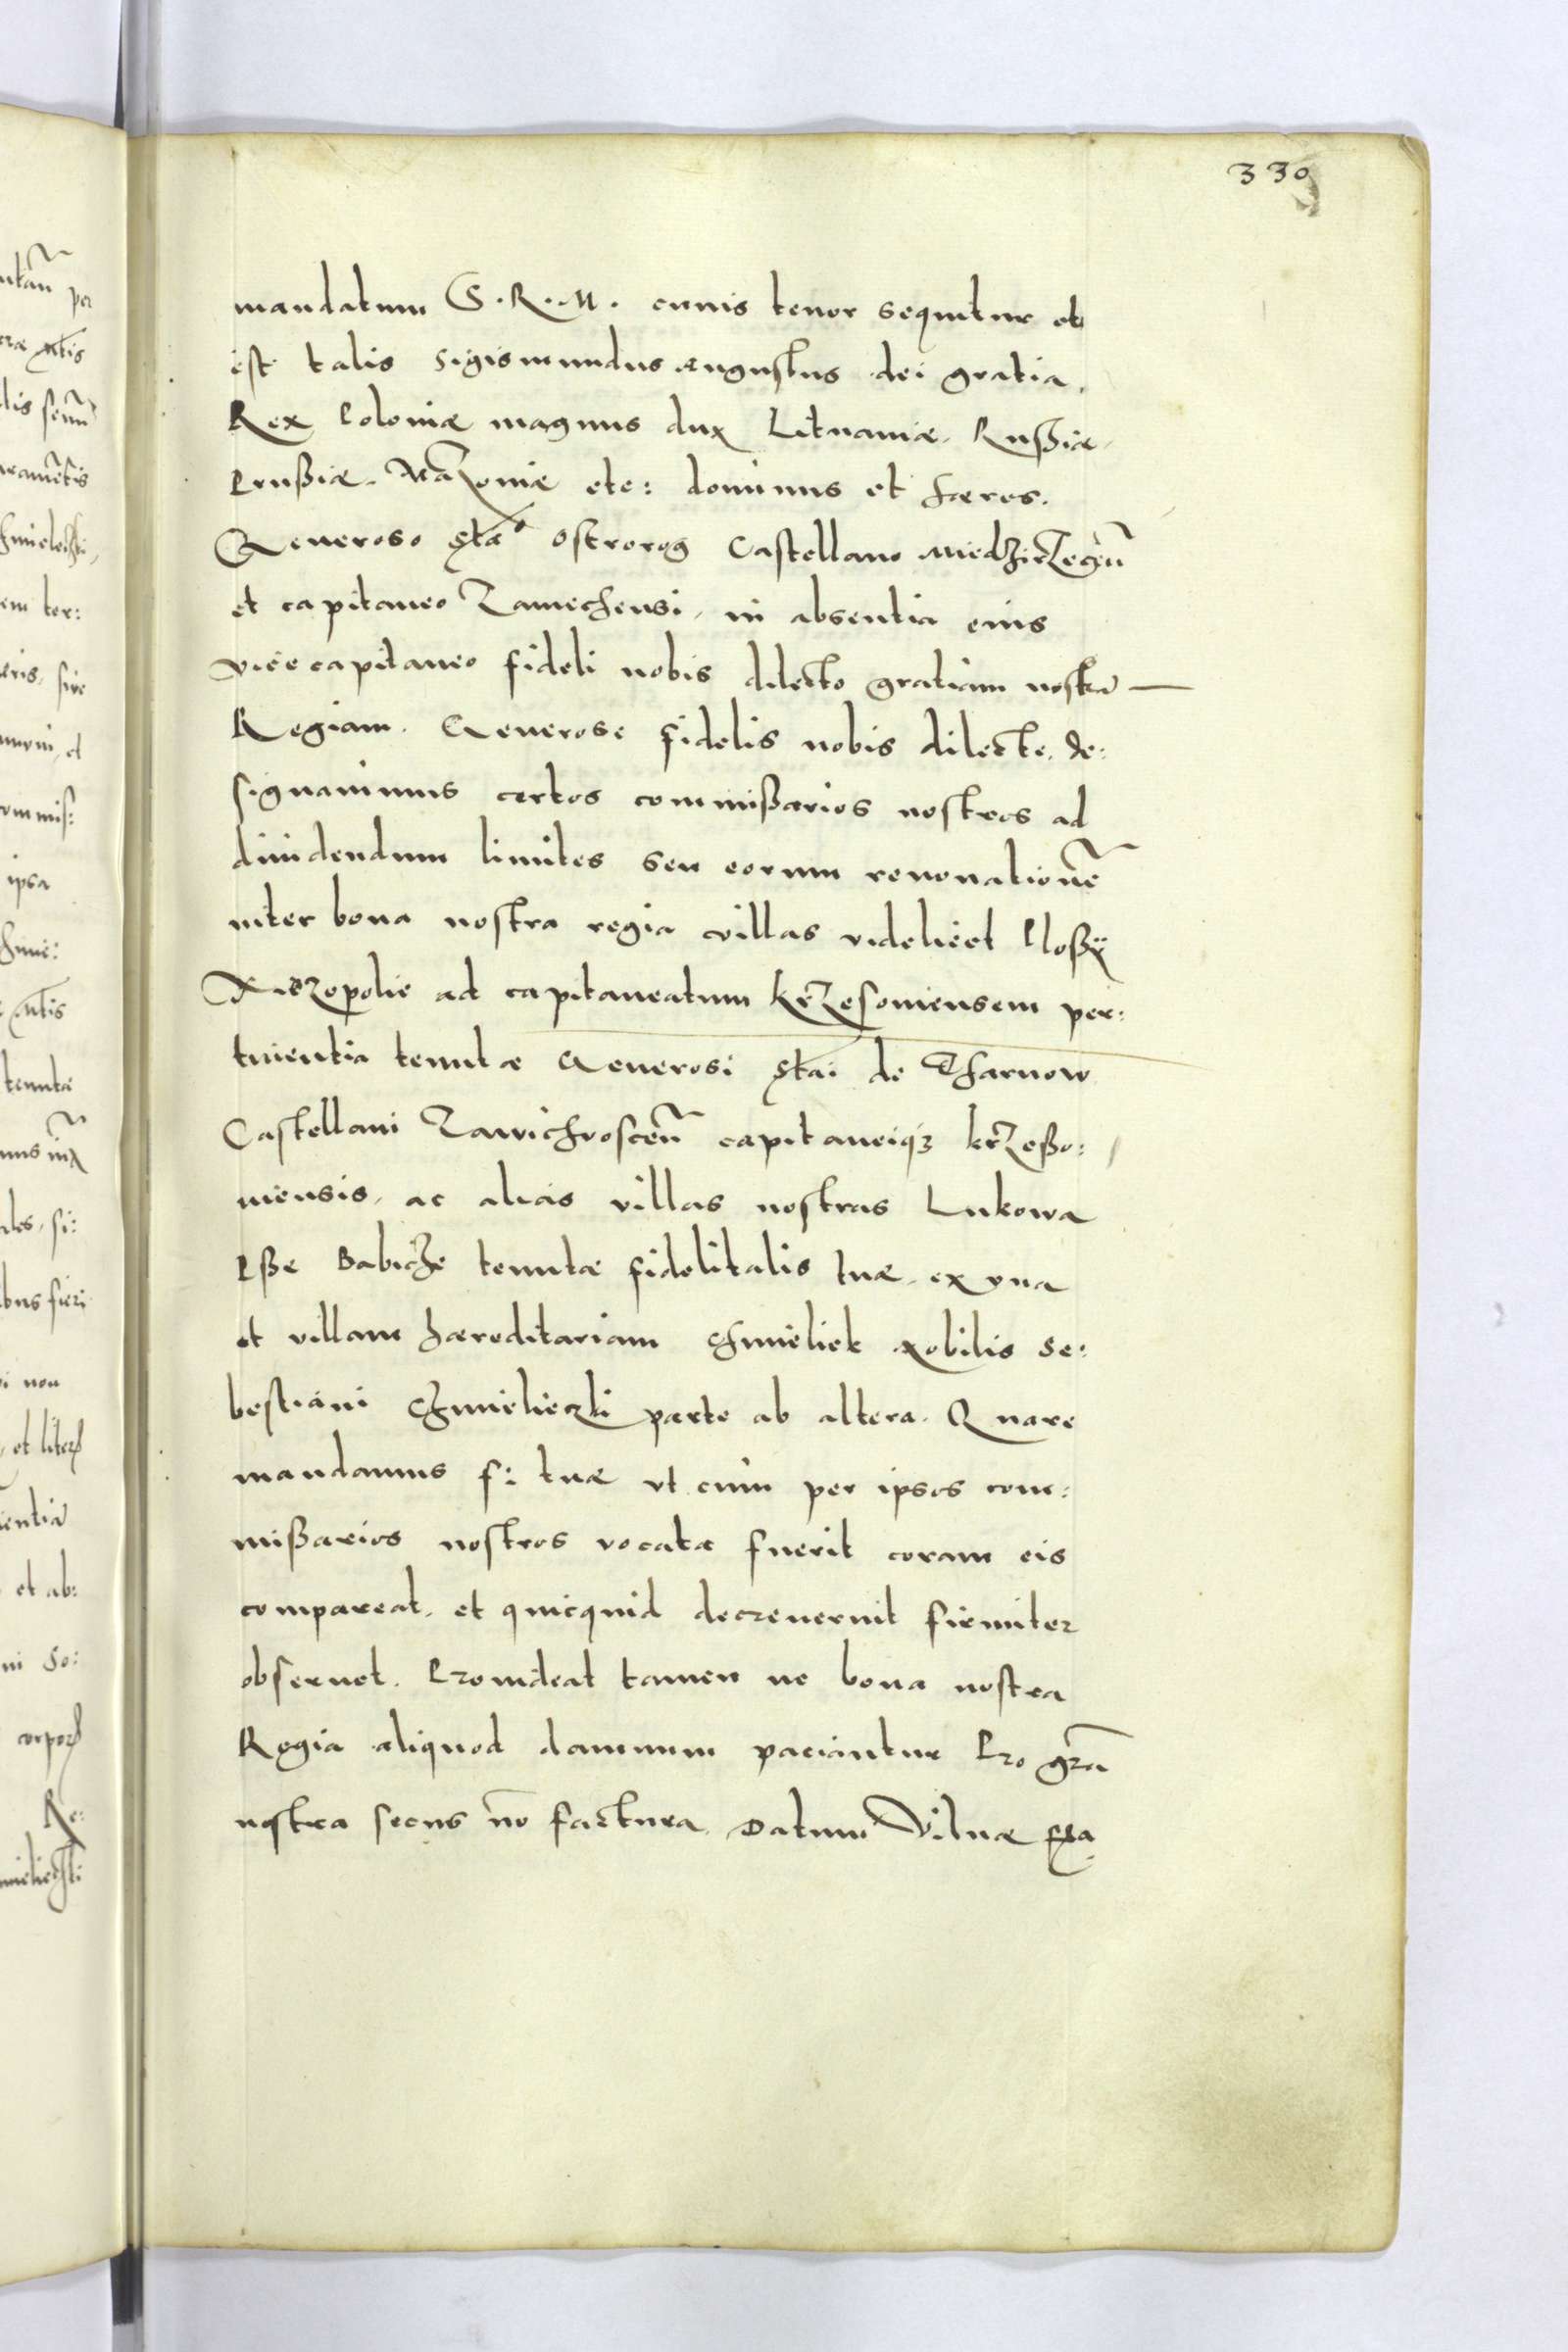 330
mandatum S. R. M. cuius tenor sequitur et
est talis Sigismundus augustus dei gratia,
Rex Poloniæ magnus dux Lituaniæ, Rußiæ,
Prußiæ, Mazoviæ etc: dominus et hæres.
Generoso Sta° Ostrorog Castellano Miedzirzeceñ
et capitaneo Zamechensi, in absentia eius
vicecapitaneo fideli nobis dilecto gratiam nostrã
Regiam. Generose fidelis nobis dilecte, de:
signavimus certos commißarios nostros ad
dividendum limites seu eorum renovationẽ
inter bona nostra regia villas videlicet
ad capitaneatum krzesoviensem per:
tinentia tenutæ Generosi Stai de Tharnow
Castellani Zawichosceñ capitaneiq3 krzeßo:
viensis, ac alias villas nostras Lukowa
Pße Babicze tenutæ fidelitatis tuæ, ex una
et villam hæreditariam Chmieliek Nobilis Se:
bestiani Chmielieczki parte ab altera. Quare
mandamus f: tuæ ut cum per ipsos com:
mißarios nostros vocata fuerit coram eis
compareat, et quicquid decreverint firmiter
observet. Provideat tamen ne bona nostra
Regia aliquod damnum paciantur Pro grã
nostra secus nõ factura. Datum Vilnæ fra